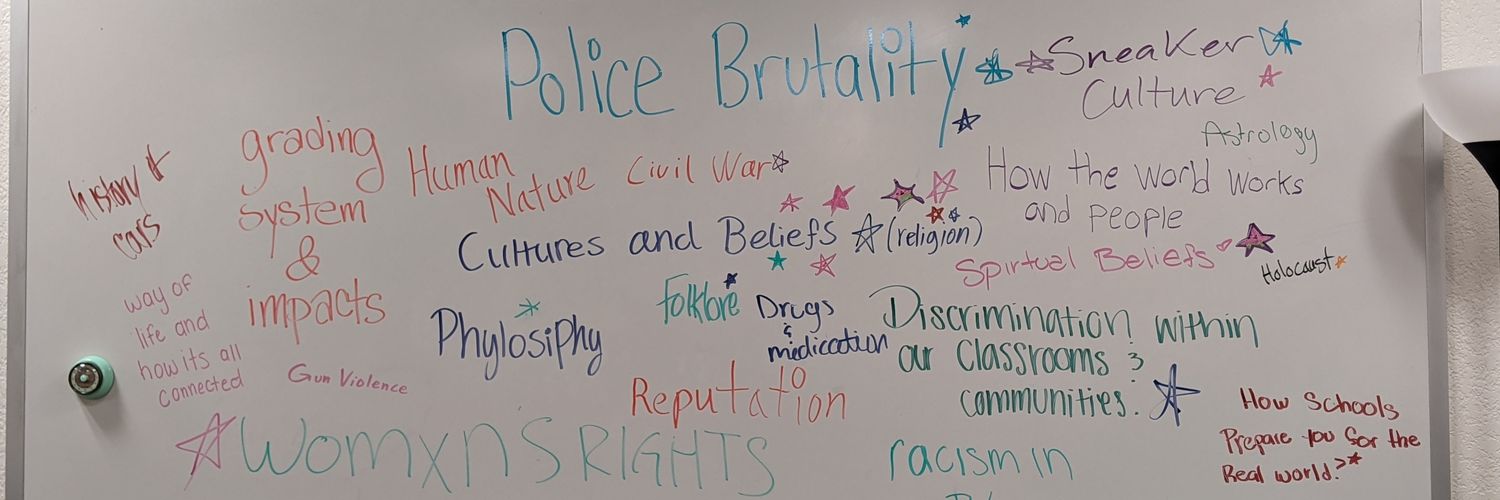 Police Brutality
Sneaker
Culture
Astrology
history
cars
grading
system
&
impacts
Human
Nature
Civil War
How the world works
and people
Cultures and Beliefs (religion)
Spirtual Beliefs
Holocaust
way of
life and
how its all
connected
Gun Violence
Phylosiphy
Folklore
Drugs
&
medication
Discrimination within
our classrooms &
communities.
Reputation
How Schools
Prepare you for the
Real world?
Womxns RIGHTS
racism in